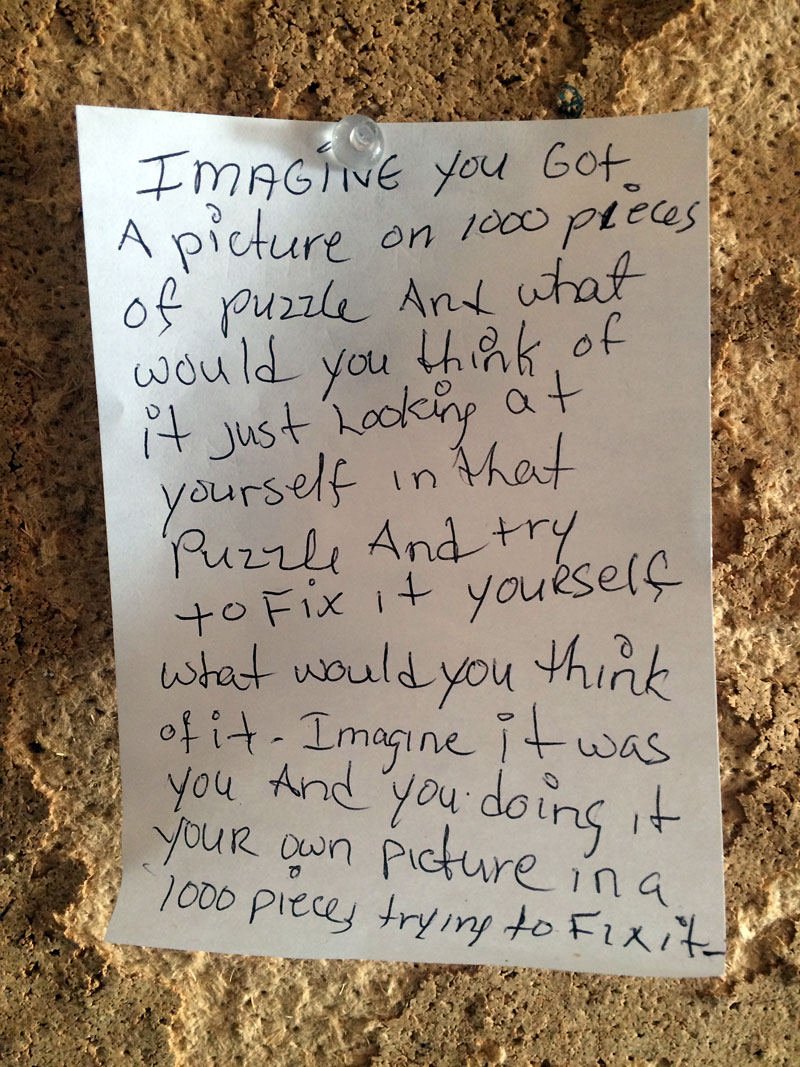 IMAGINE you Got
A picture on 1000 pieces
of puzzle And what
would you think of
it just Looking at
yourself in that
Puzzle And try
to Fix it yourself
what would you think
of it - Imagine it was
you And you doing it
your own picture in a
1000 pieces trying to Fix it-